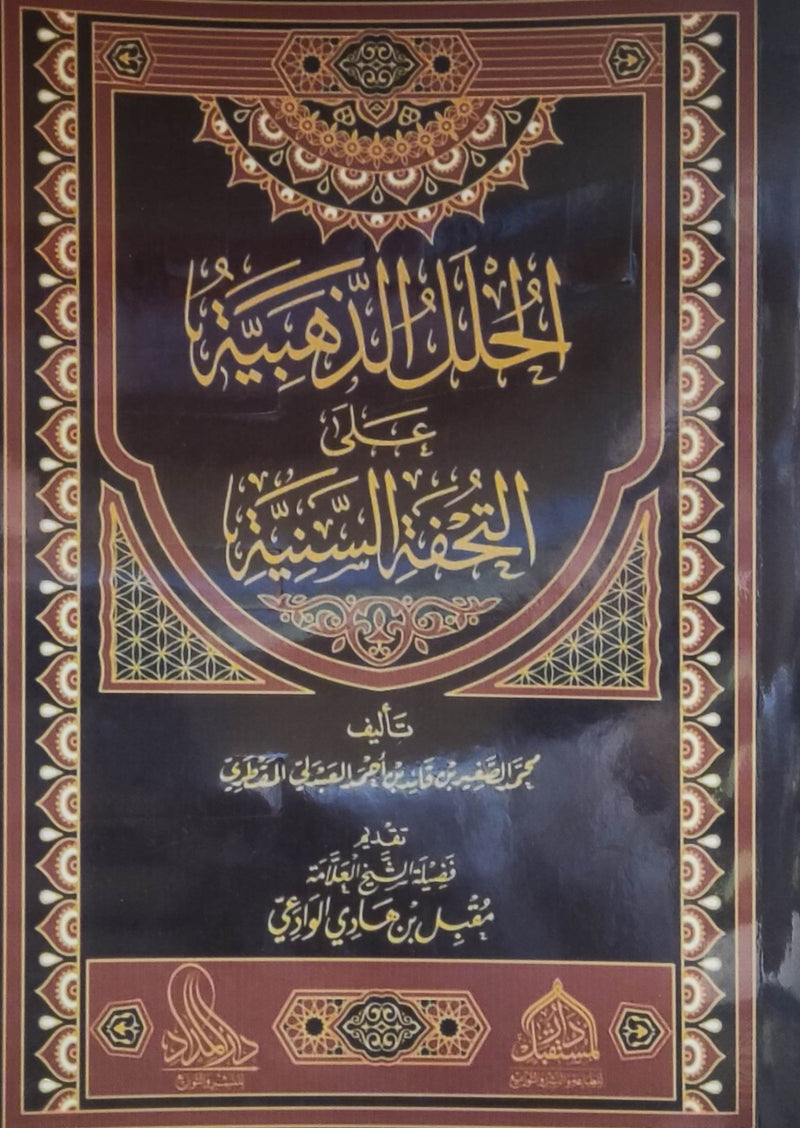 الحُلَلُ الذَّهَبِيَّةُ
عَلَى
التُّحْفَةِ السَّنِيَّةِ
تَأليف
محمد الصَّغير بن قائد بن أحمد العبدلي المقطري
تقديم
فَضِيلَة الشَّيخ العَلَّامَة
مُقْبِل بن هَادِي الوَادِعِيّ
دار المستقبل
للطباعة والنشر والتوزيع
للنشر والتوزيع